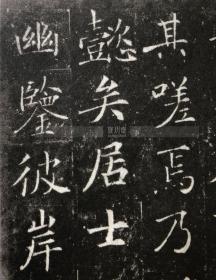 其嗟焉乃
懿矣居士
幽鑒彼岸